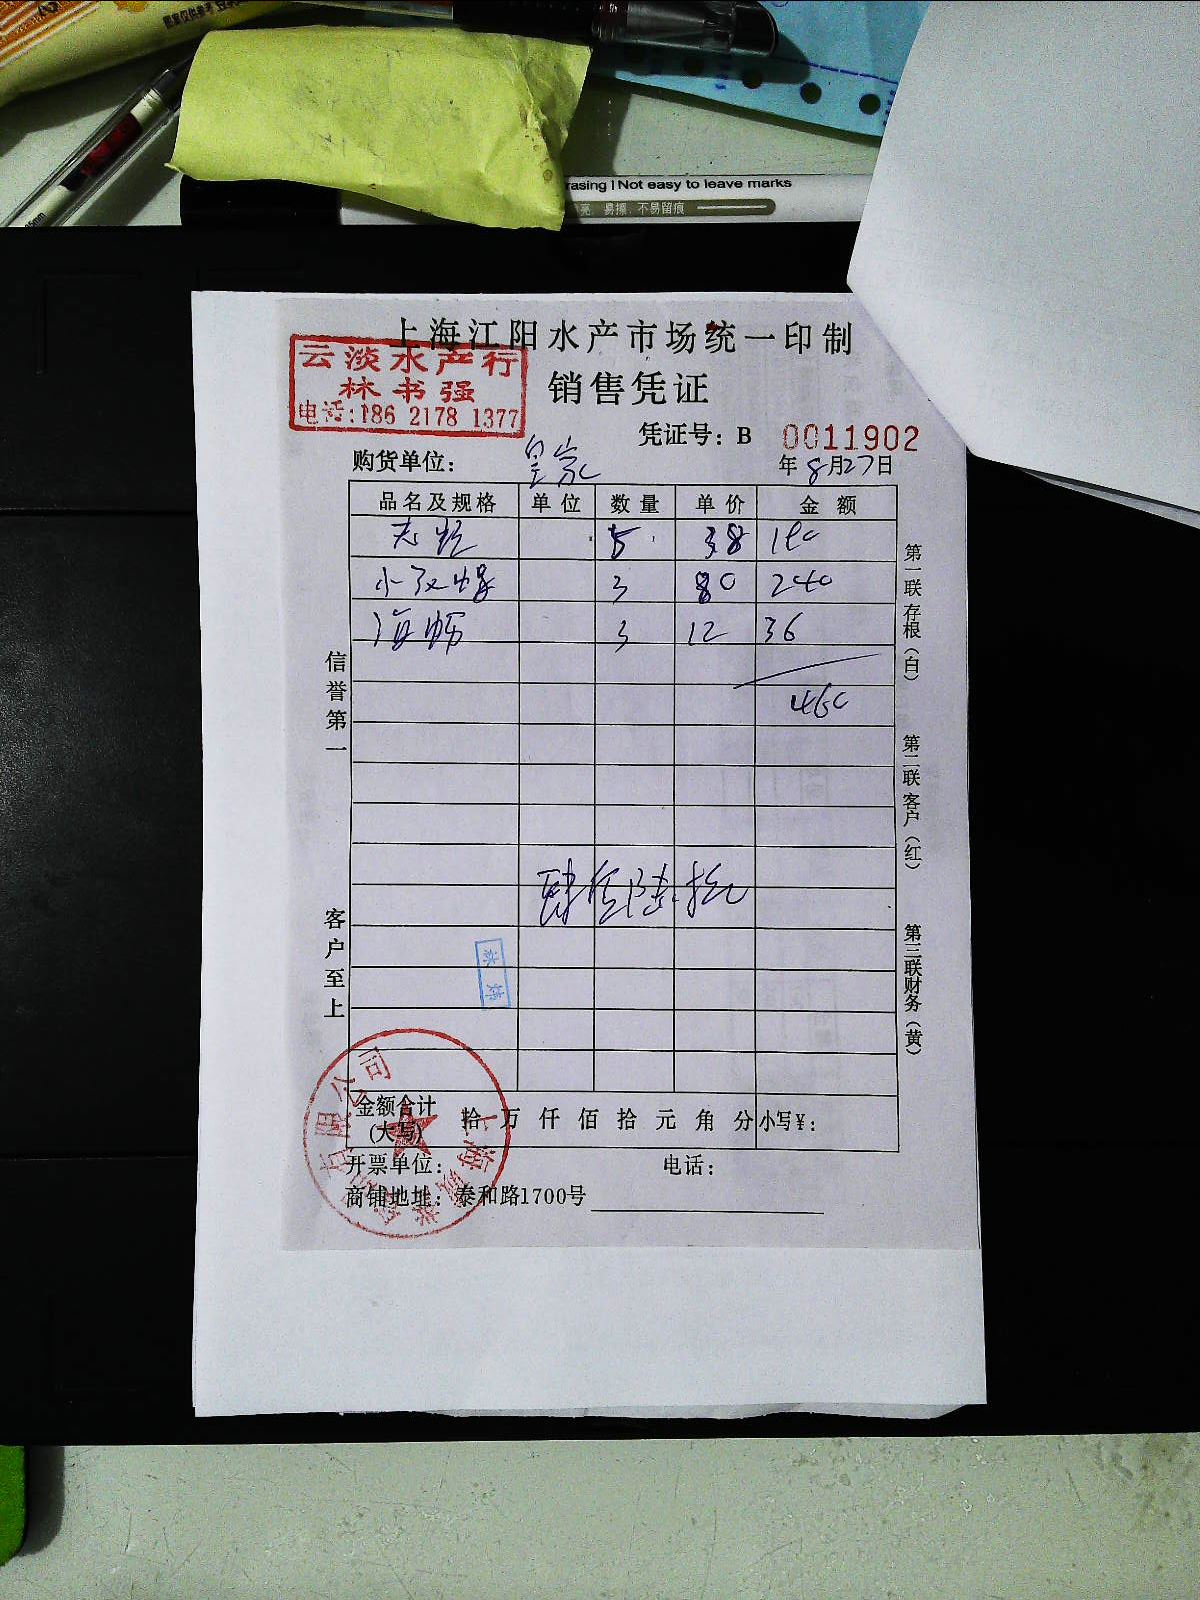 rasing | Not easy to leave marks
亮、易擦、不易留痕
上海江阳水产市场统一印制
云淡水产行
林书强
电话:186 2178 1377
销售凭证
凭证号：B 0011902
购货单位： 皇家
年 8月27日
品名及规格 单位 数量 单价 金额
5 38 190
小 3 80 240
海蛎 3 12 36
460
肆佰陆拾
信誉第一
客户至上
第一联存根（白）
第二联客户（红）
第三联财务（黄）
林
金额合计
(大写)
拾 万 仟 佰 拾 元 角 分 小写￥：
开票单位：
电话：
商铺地址：泰和路1700号
上海
有限公司